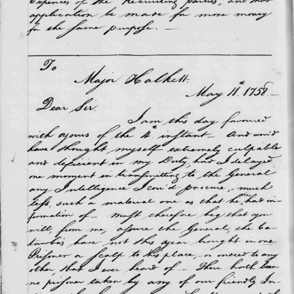 Expences of the Recruiting parties, and that
application be made for more money
for the same purpose. —
To
Major Halkett.
May 11th 1758 —
Dear Sir.
I am this day favoured
with yours of the 4 instant — And wou'd
have thought myself extremely culpable
and deficient in my Duty, had I delayed
one moment in transmitting to the General
any Intelligence I cou'd procure, much
less, such a material one as that he had in-
formation of must therefore beg that you
will from me, assure the General, the
have not this year brought in one
Prisoner or Scalp to this place, or indeed to any
other, that I ever heard of. There hath been
no prisoner taken by any of our friendly In-